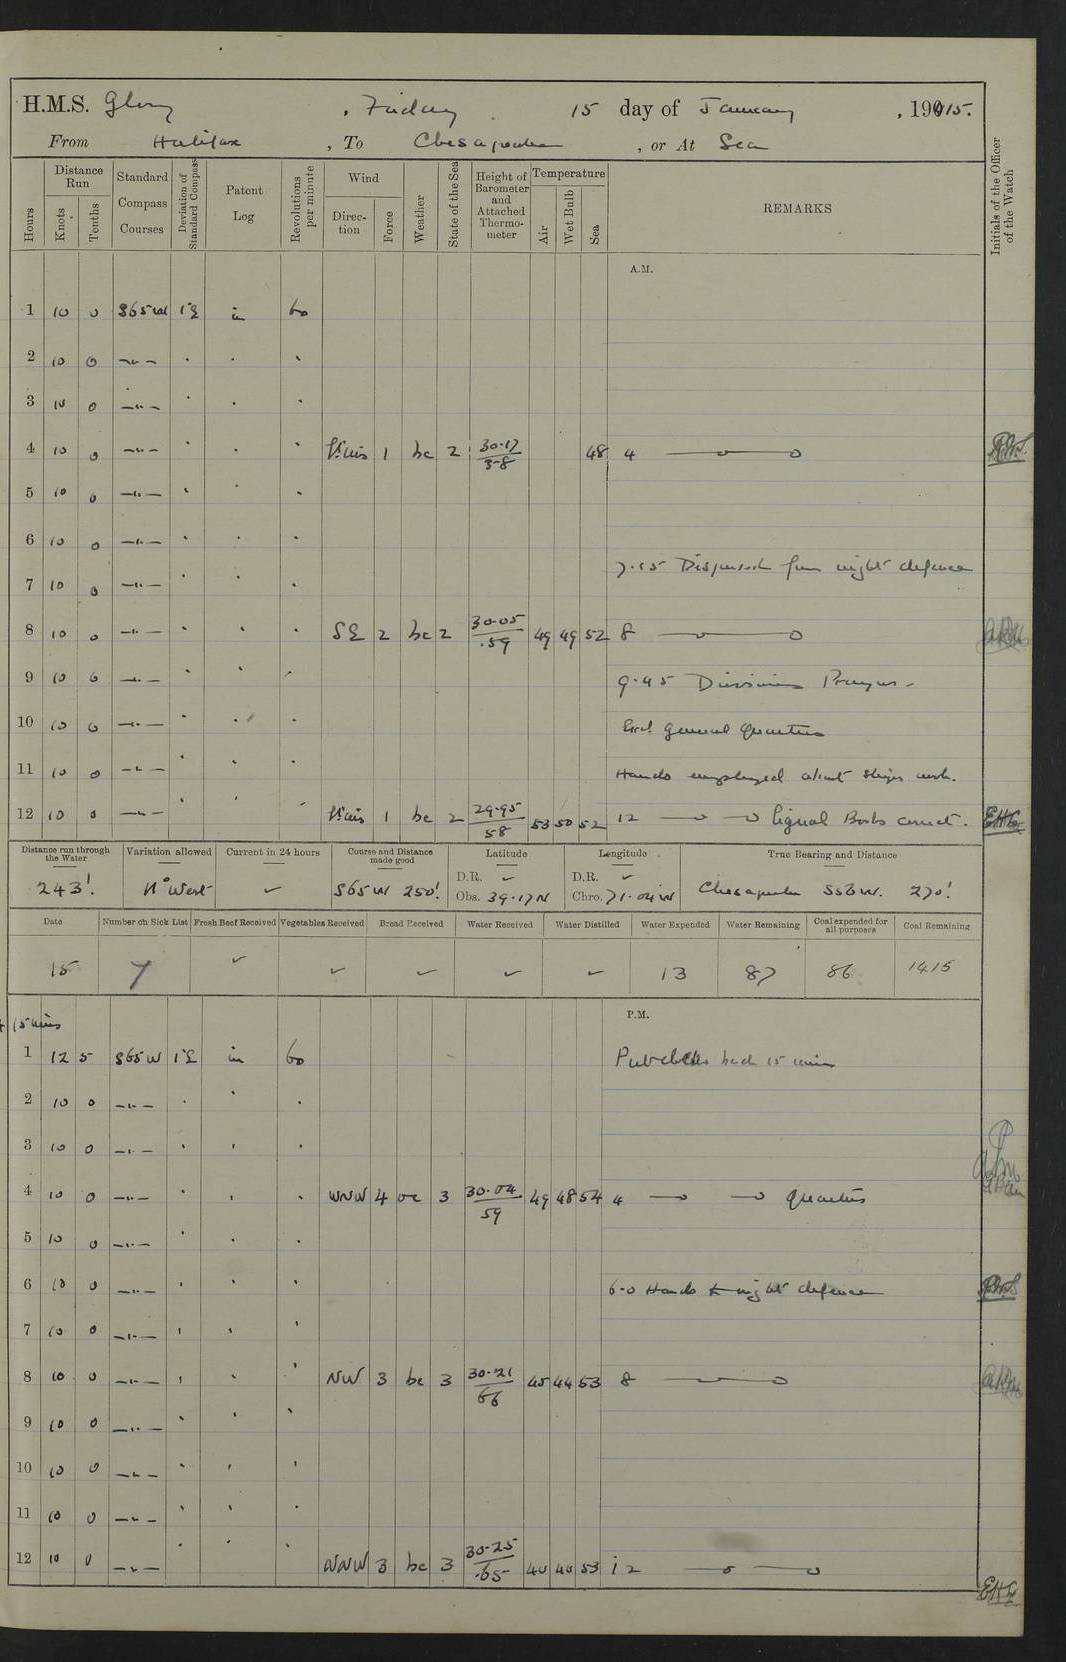 H.M.S. Glory , Friday 15 day of January , 1915.
From Halifax , To Chesapeake , or At Sea
Hours
Distance Run
Knots
Tenths
Standard Compass Courses
Deviation of Standard Compass
Patent Log
Revolutions per minute
Wind
Direction
Force
Weather
State of the Sea
Height of Barometer and Attached Thermometer
Temperature
Air
Wet Bulb
Sea
REMARKS
Initials of the Officer of the Watch
A.M.
1 10 0 S65W 1°E in 60
2 10 0 —"—
3 10 0 —"—
4 10 0 —"— 1 bc 2 30.17 58 48 4 —o— o
5 10 0 —"—
6 10 0 —"—
7.15 Dispersed from night defence
7 10 0 —"—
8 10 0 —"— SE 2 bc 2 30.05 .59 49 49 52 8 —o— o
9 10 0 —"— 9.45 Divisions Prayers -
10 10 0 —"— General Quarters
11 10 0 —"— Hands employed about ships work.
12 10 0 —"— 1 bc 2 29.95 58 53 50 52 12 —o —o Signal Books correct. EHG
Distance run through the Water
243'.
Variation allowed
11° West
Current in 24 hours
✓
Course and Distance made good
S65W 250'.
Latitude
D.R. ✓
Obs. 39.17N
Longitude
D.R. ✓
Chro. 71.04W
True Bearing and Distance
Chesapeake 270'.
Date Number on Sick List Fresh Beef Received Vegetables Received Bread Received Water Received Water Distilled Water Expended Water Remaining Coal expended for all purposes Coal Remaining
15 7 ✓ ✓ ✓ ✓ ✓ 13 87 86 1415
P.M.
+ 15 mins
1 12 5 S65W 1°E in 60 Put clocks back 15 mins
2 10 0 —"—
3 10 0 —"—
4 10 0 —"— WNW 4 oc 3 30.04 59 49 48 54 4 —o —o Quarters
5 10 0 —"—
6 10 0 —"— 6.0 Hands to night defence
7 10 0 —"—
8 10 0 —"— NW 3 bc 3 30.21 66 45 44 53 8 —o
9 10 0 —"—
10 10 0 —"—
11 10 0 —"—
12 10 0 —"— NNW 3 bc 3 30.25 .65 40 40 53 12 —o —o
EHG